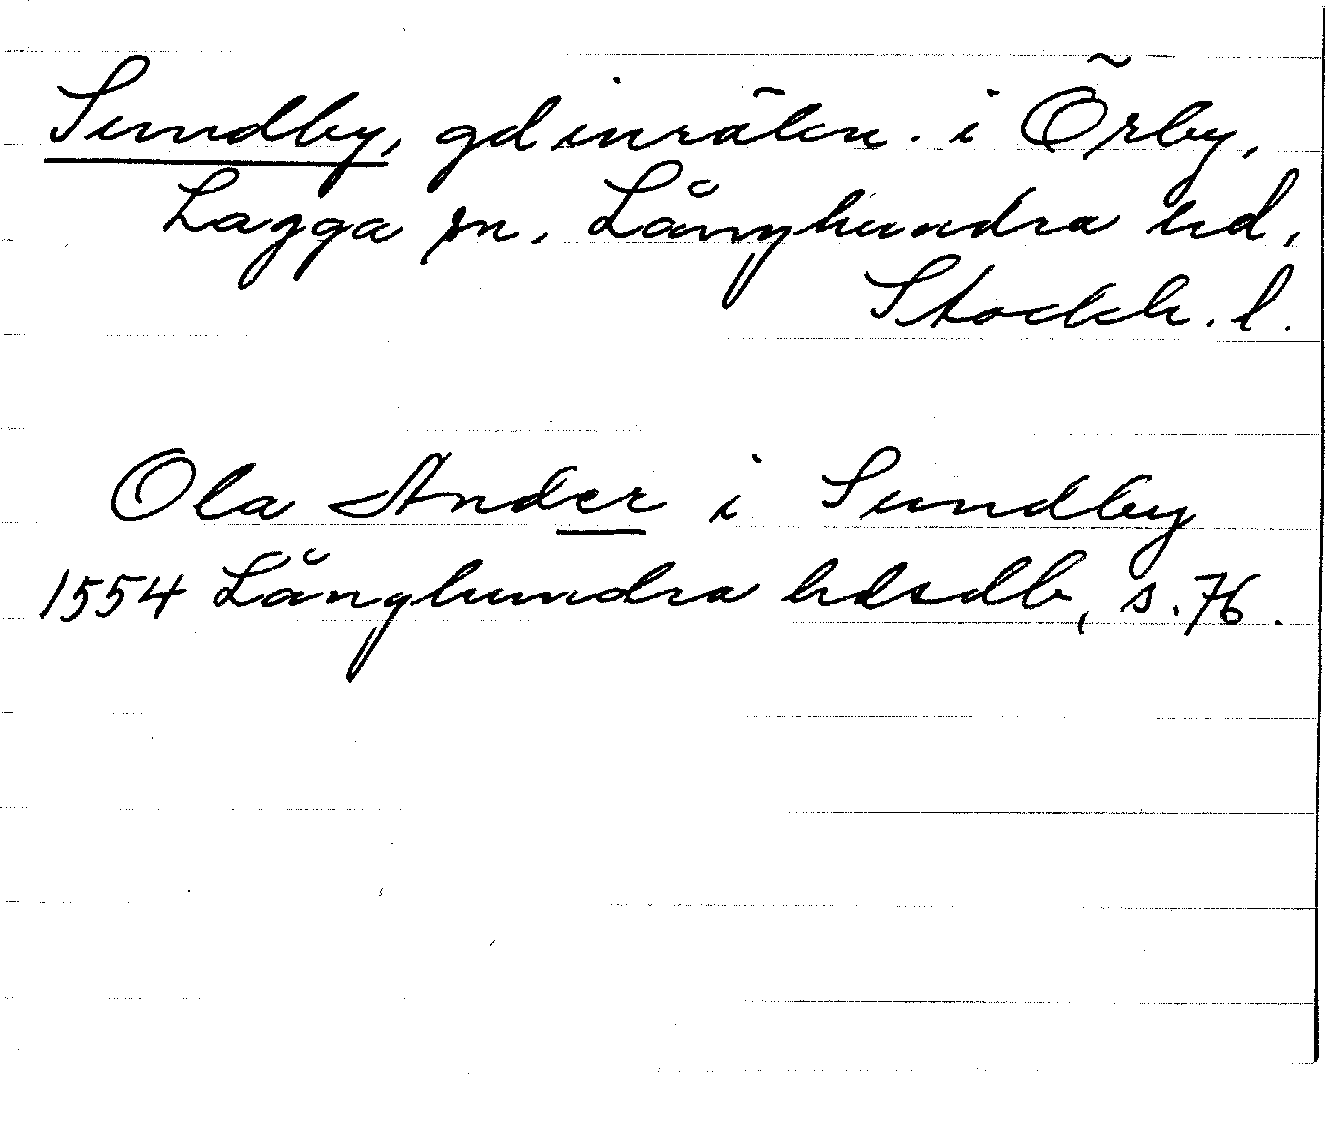 Sundby, gd inräkn. i Örby,
Lagga sn, Långhundra hd,
Stockh. l.
Ola Ander i Sundby
1554 Långhundra hdsdb, s. 76.